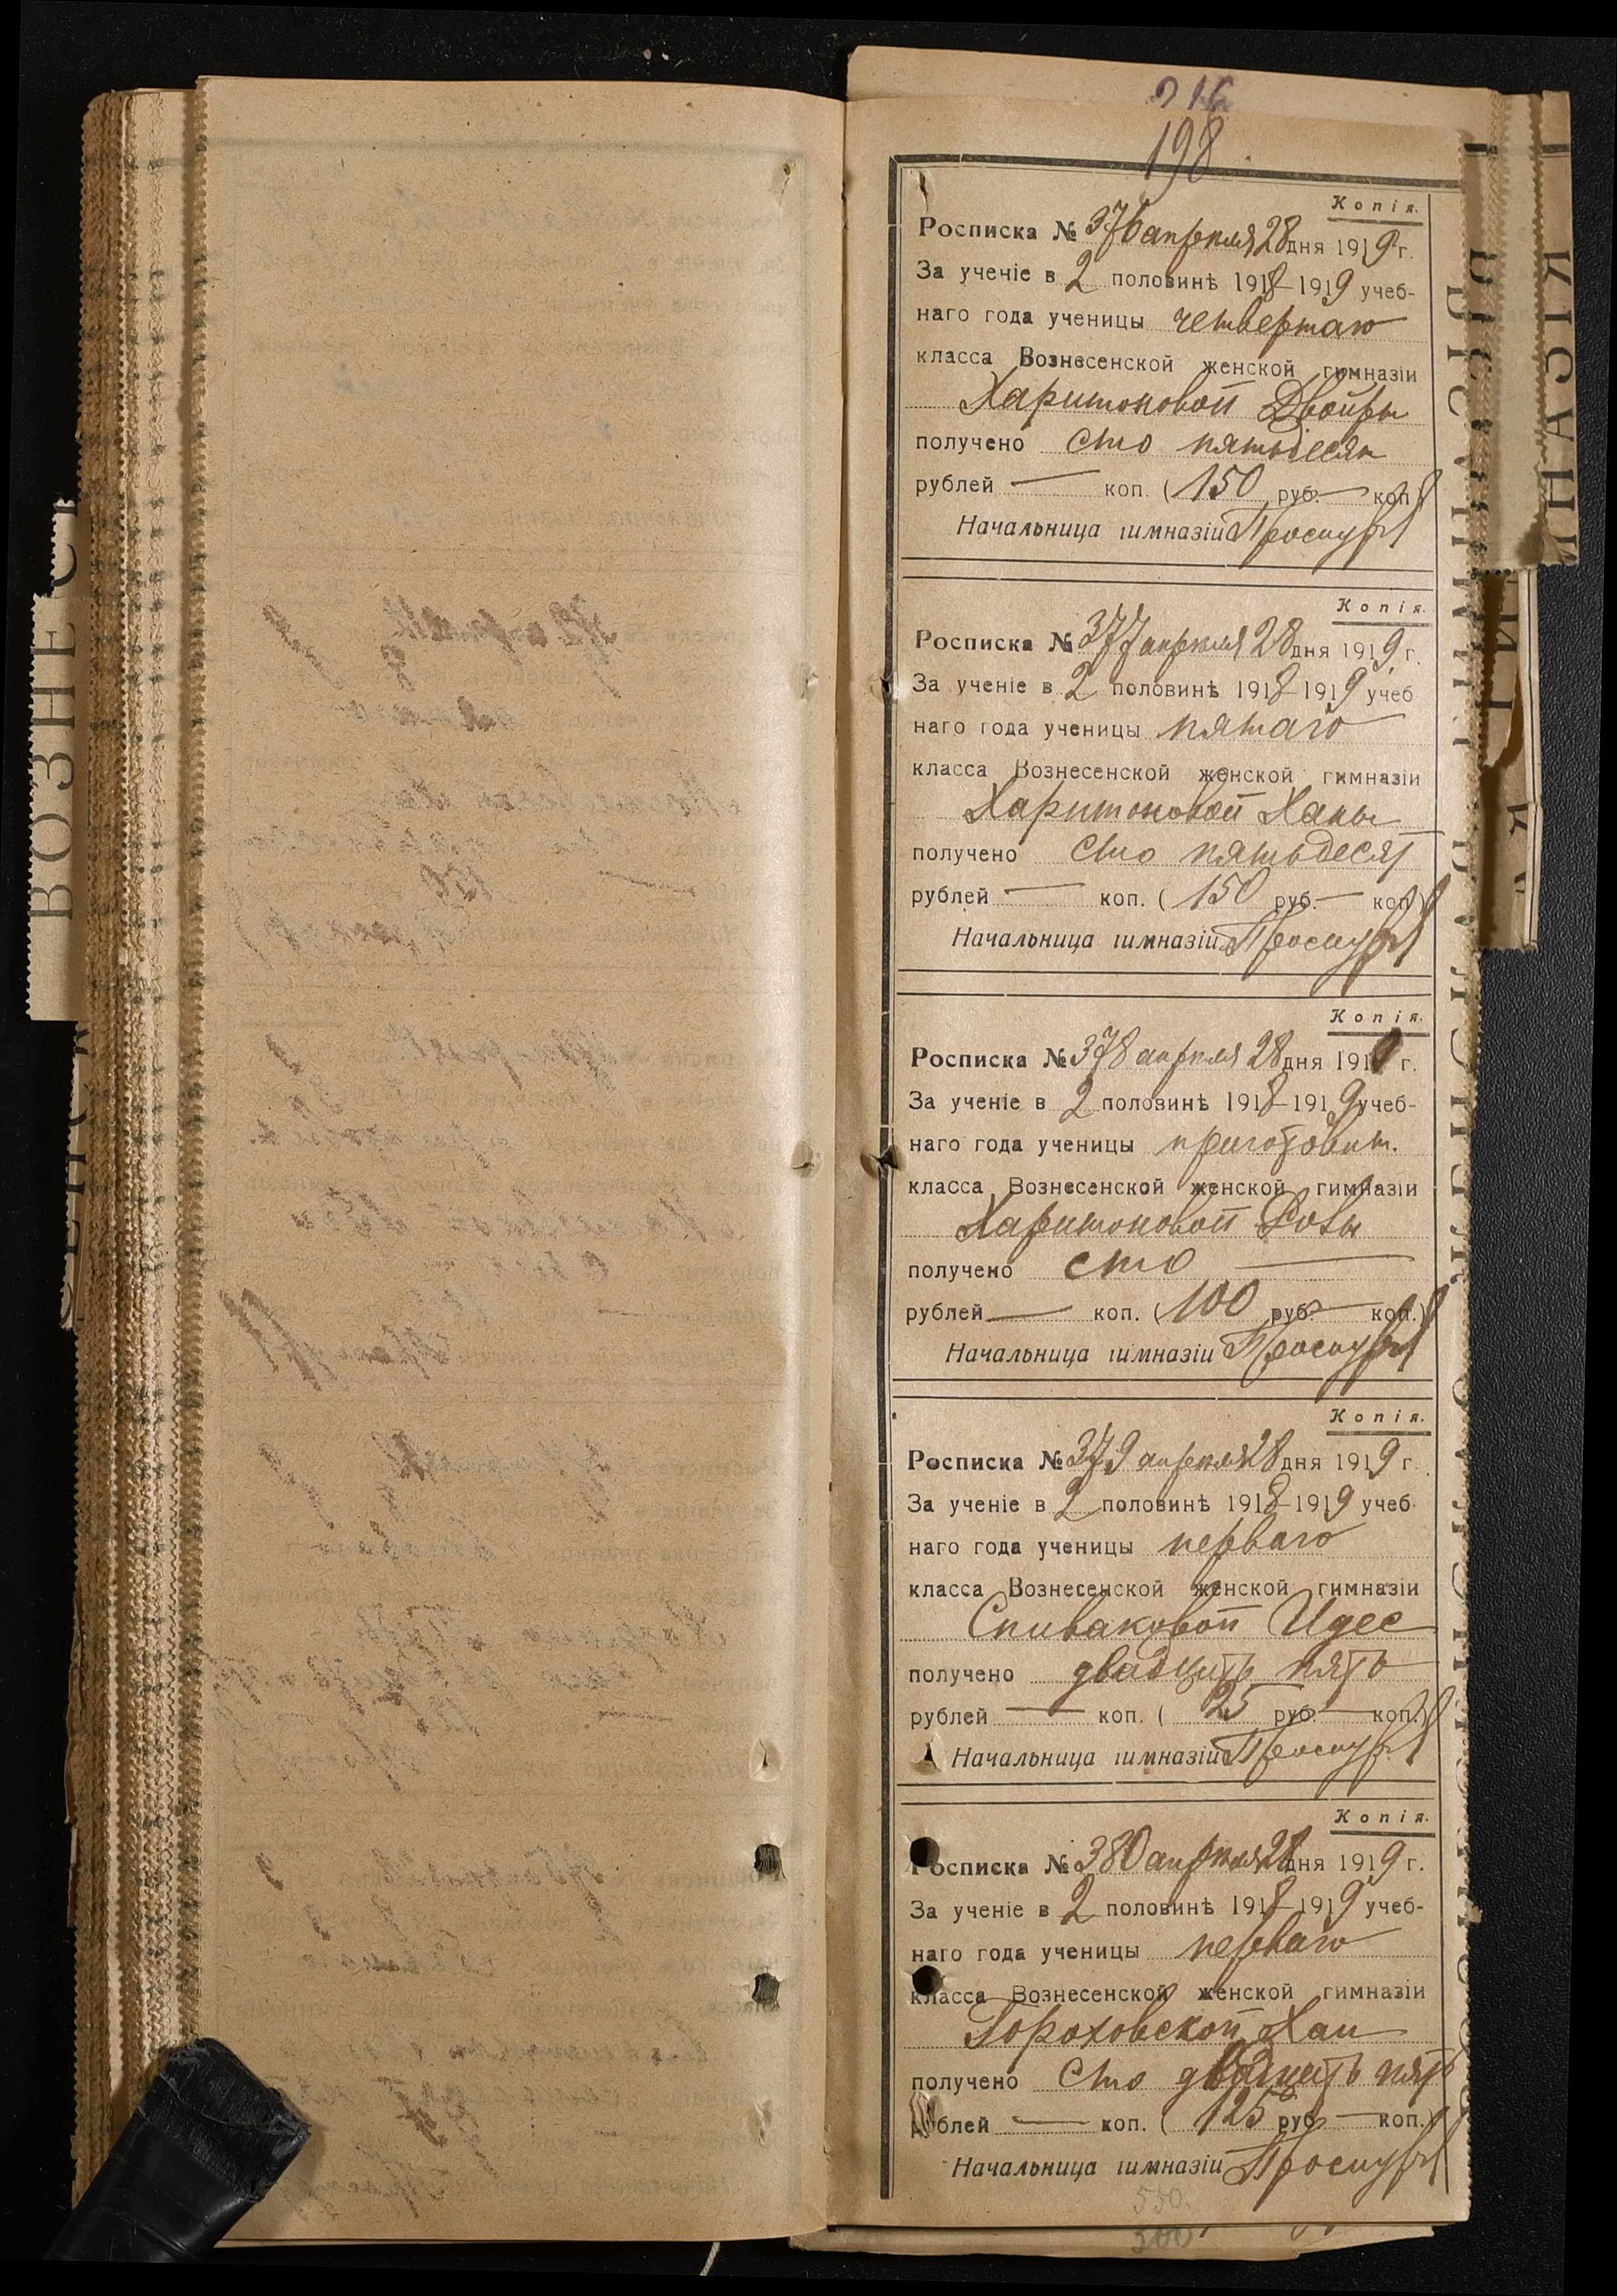 198
Копія.
Росписка № 376 апреля 28 дня 1919 г.
За ученіе в 2 половинѣ 1918-1919 учеб-
наго года ученицы четвертаго
класса Вознесенской женской гимназіи
Харитоновой Двойры
получено сто пятьдесят
рублей — коп. (150 руб. — коп.)
Начальница гимназіи
Копія.
Росписка № 377 апреля 28 дня 1919 г.
За ученіе в 2 половинѣ 1918-1919 учеб
наго года ученицы пятаго
класса Вознесенской женской гимназіи
Харитоновой Ханы
получено сто пятьдесят
рублей — коп. (150 руб. — коп.)
Начальница гимназіи
Копія.
Росписка № 378 апреля 28 дня 1919 г.
За ученіе в 2 половинѣ 1918-1919 учеб-
наго года ученицы приготовит.
класса Вознесенской женской гимназіи
Харитоновой Розы
получено сто —
рублей — коп. (100 руб. — коп.)
Начальница гимназіи
Копія.
Росписка № 379 апреля 28 дня 1919 г.
За ученіе в 2 половинѣ 1918-1919 учеб-
наго года ученицы перваго
класса Вознесенской женской гимназіи
Спиваковой Идес
получено двадцать пять
рублей — коп. ( 25 руб. — коп.)
Начальница гимназіи
Копія.
Росписка № 380 апреля 28 дня 1919 г.
За ученіе в 2 половинѣ 1918-1919 учеб-
наго года ученицы перваго
класса Вознесенской женской гимназіи
Гороховской Хаи
получено сто двадцать пять
рублей — коп. ( 125 руб. — коп.)
Начальница гимназіи
550.
ВОЗНЕС